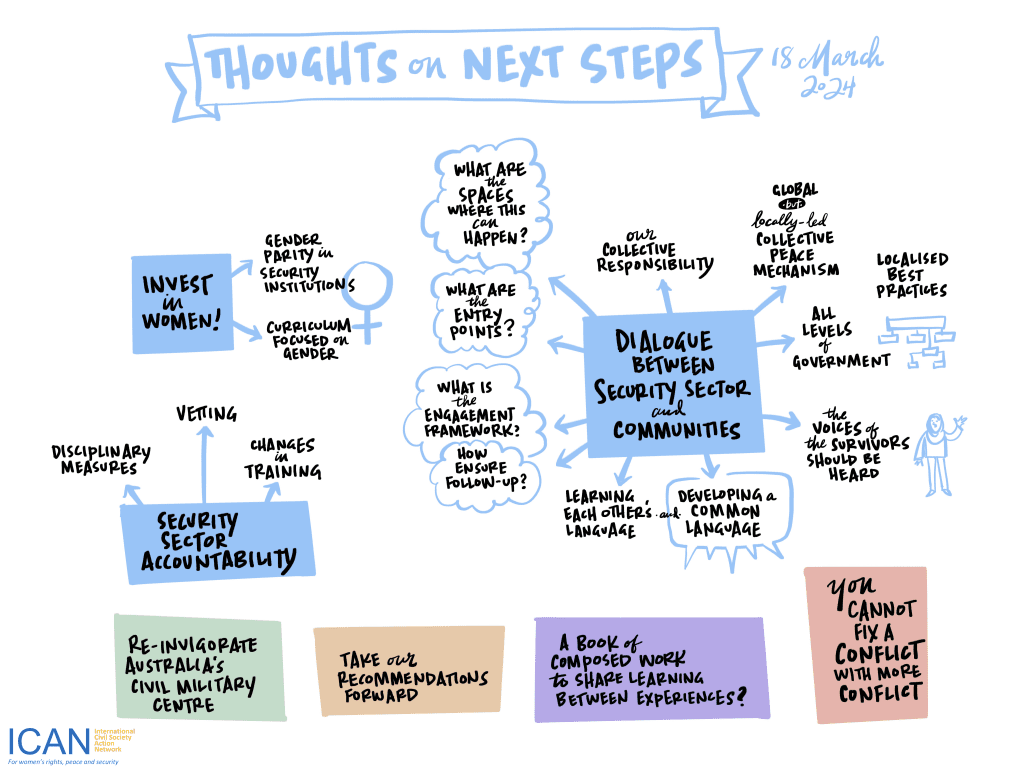 THOUGHTS on NEXT STEPS
18 March
2024
WHAT ARE
the
SPACES
WHERE THIS
can
HAPPEN?
WHAT ARE
the
ENTRY
POINTS?
WHAT IS
the
ENGAGEMENT
FRAMEWORK?
HOW
ENSURE
FOLLOW-UP?
our
COLLECTIVE
RESPONSIBILITY
GLOBAL
but
locally-led
COLLECTIVE
PEACE
MECHANISM
LOCALISED
BEST
PRACTICES
ALL
LEVELS
of
GOVERNMENT
the
VOICES of
the SURVIVORS
SHOULD BE
HEARD
DIALOGUE
BETWEEN
SECURITY SECTOR
and
COMMUNITIES
LEARNING
EACH OTHER'S
LANGUAGE
.and.
DEVELOPING a
COMMON
LANGUAGE
INVEST
in
WOMEN!
GENDER
PARITY in
SECURITY
INSTITUTIONS
CURRICULUM
FOCUSED ON
GENDER
VETTING
DISCIPLINARY
MEASURES
CHANGES
in
TRAINING
SECURITY
SECTOR
ACCOUNTABILITY
RE-INVIGORATE
AUSTRALIA'S
CIVIL MILITARY
CENTRE
TAKE our
RECOMMENDATIONS
FORWARD
A BOOK of
COMPOSED WORK
to SHARE LEARNING
BETWEEN EXPERIENCES?
YOU
CANNOT
FIX A
CONFLICT
WITH MORE
CONFLICT
ICAN
International
Civil Society
Action
Network
For women's rights, peace and security